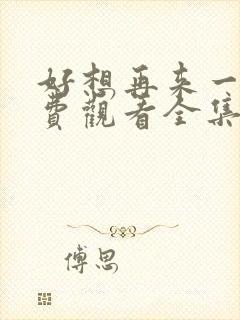 好想再来一
费观看全集
傅思